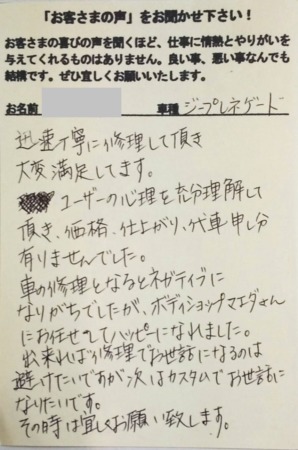 「お客さまの声」をお聞かせ下さい!
お客さまの喜びの声を聞くほど、仕事に情熱とやりがいを
与えてくれるものはありません。良い事、悪い事なんでも
結構です。ぜひ宜しくお願いいたします。
お名前 車種 ジープレネゲード
迅速丁寧に修理して頂き
大変満足してます。
ユーザーの心理を充分理解して
頂き、価格、仕上がり、代車申し分
有りませんでした。
車の修理となるとネガティブに
なりがちでしたが、ボディショップマエダさん
にお任せしてハッピーになれました。
出来れば修理でお世話になるのは
避けたいですが次はカスタムでお世話に
なりたいです。
その時は宜しくお願い致します。